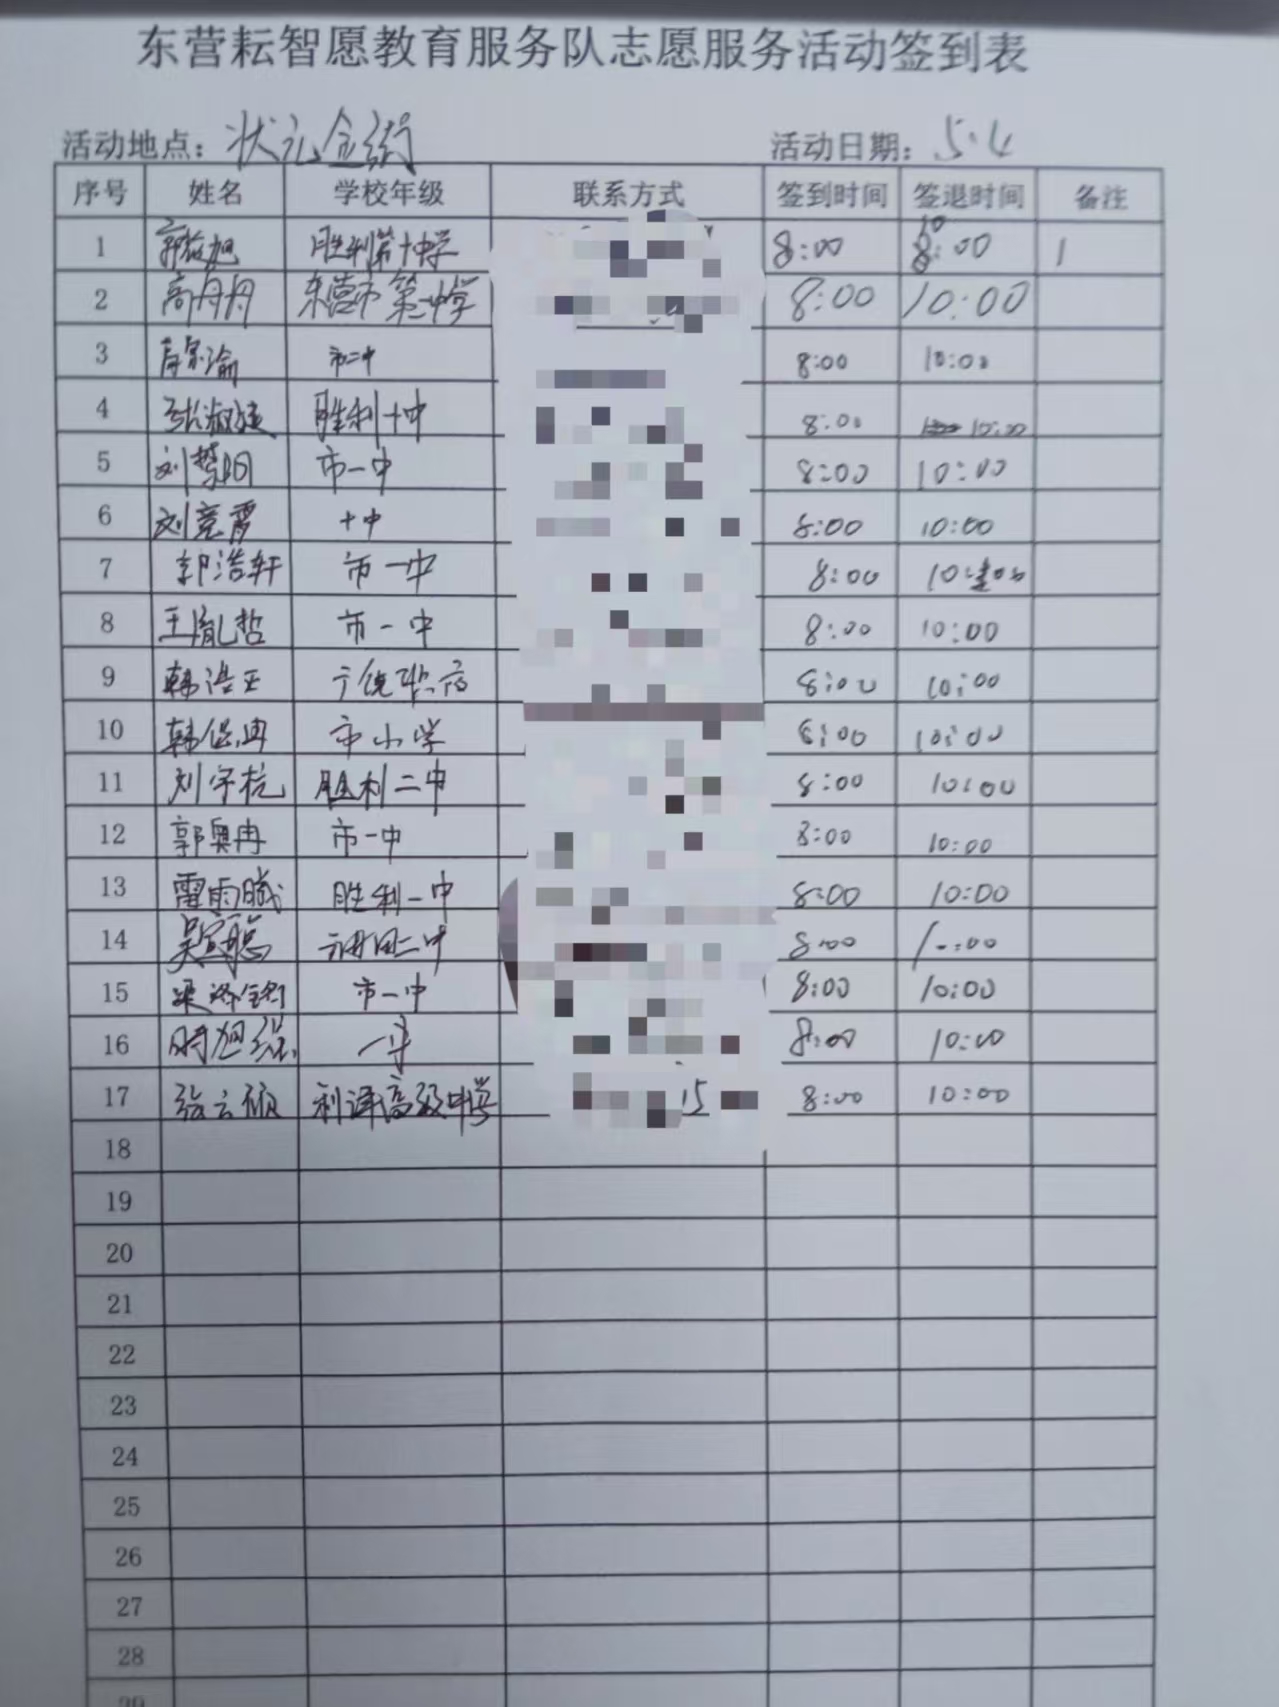 东营耘智愿教育服务队志愿服务活动签到表
活动地点： 状元 活动日期：5.4
序号 姓名 学校年级 联系方式 签到时间 签退时间 备注
1 旭 胜利第十中学 8:00 10:00 1
2 高丹丹 东营市第一中学 8:00 10:00
3 市二中 8:00 10:00
4 张淑 胜利十中 8:00 10:00
5 刘哲 市一中 8:00 10:00
6 刘竞霄 十中 8:00 10:00
7 郭浩轩 市一中 8:00 10:00
8 王胤哲 市一中 8:00 10:00
9 韩浩 8:00 10:00
10 韩 市小学 8:00 10:00
11 刘宇杭 胜利二中 8:00 10:00
12 郭奥冉 市一中 8:00 10:00
13 雷雨曦 胜利一中 8:00 10:00
14 吴 二中 8:00 10:00
15 市一中 8:00 10:00
16 时旭 一中 8:00 10:00
17 张云 利津高级中学 15 8:00 10:00
18
19
20
21
22
23
24
25
26
27
28